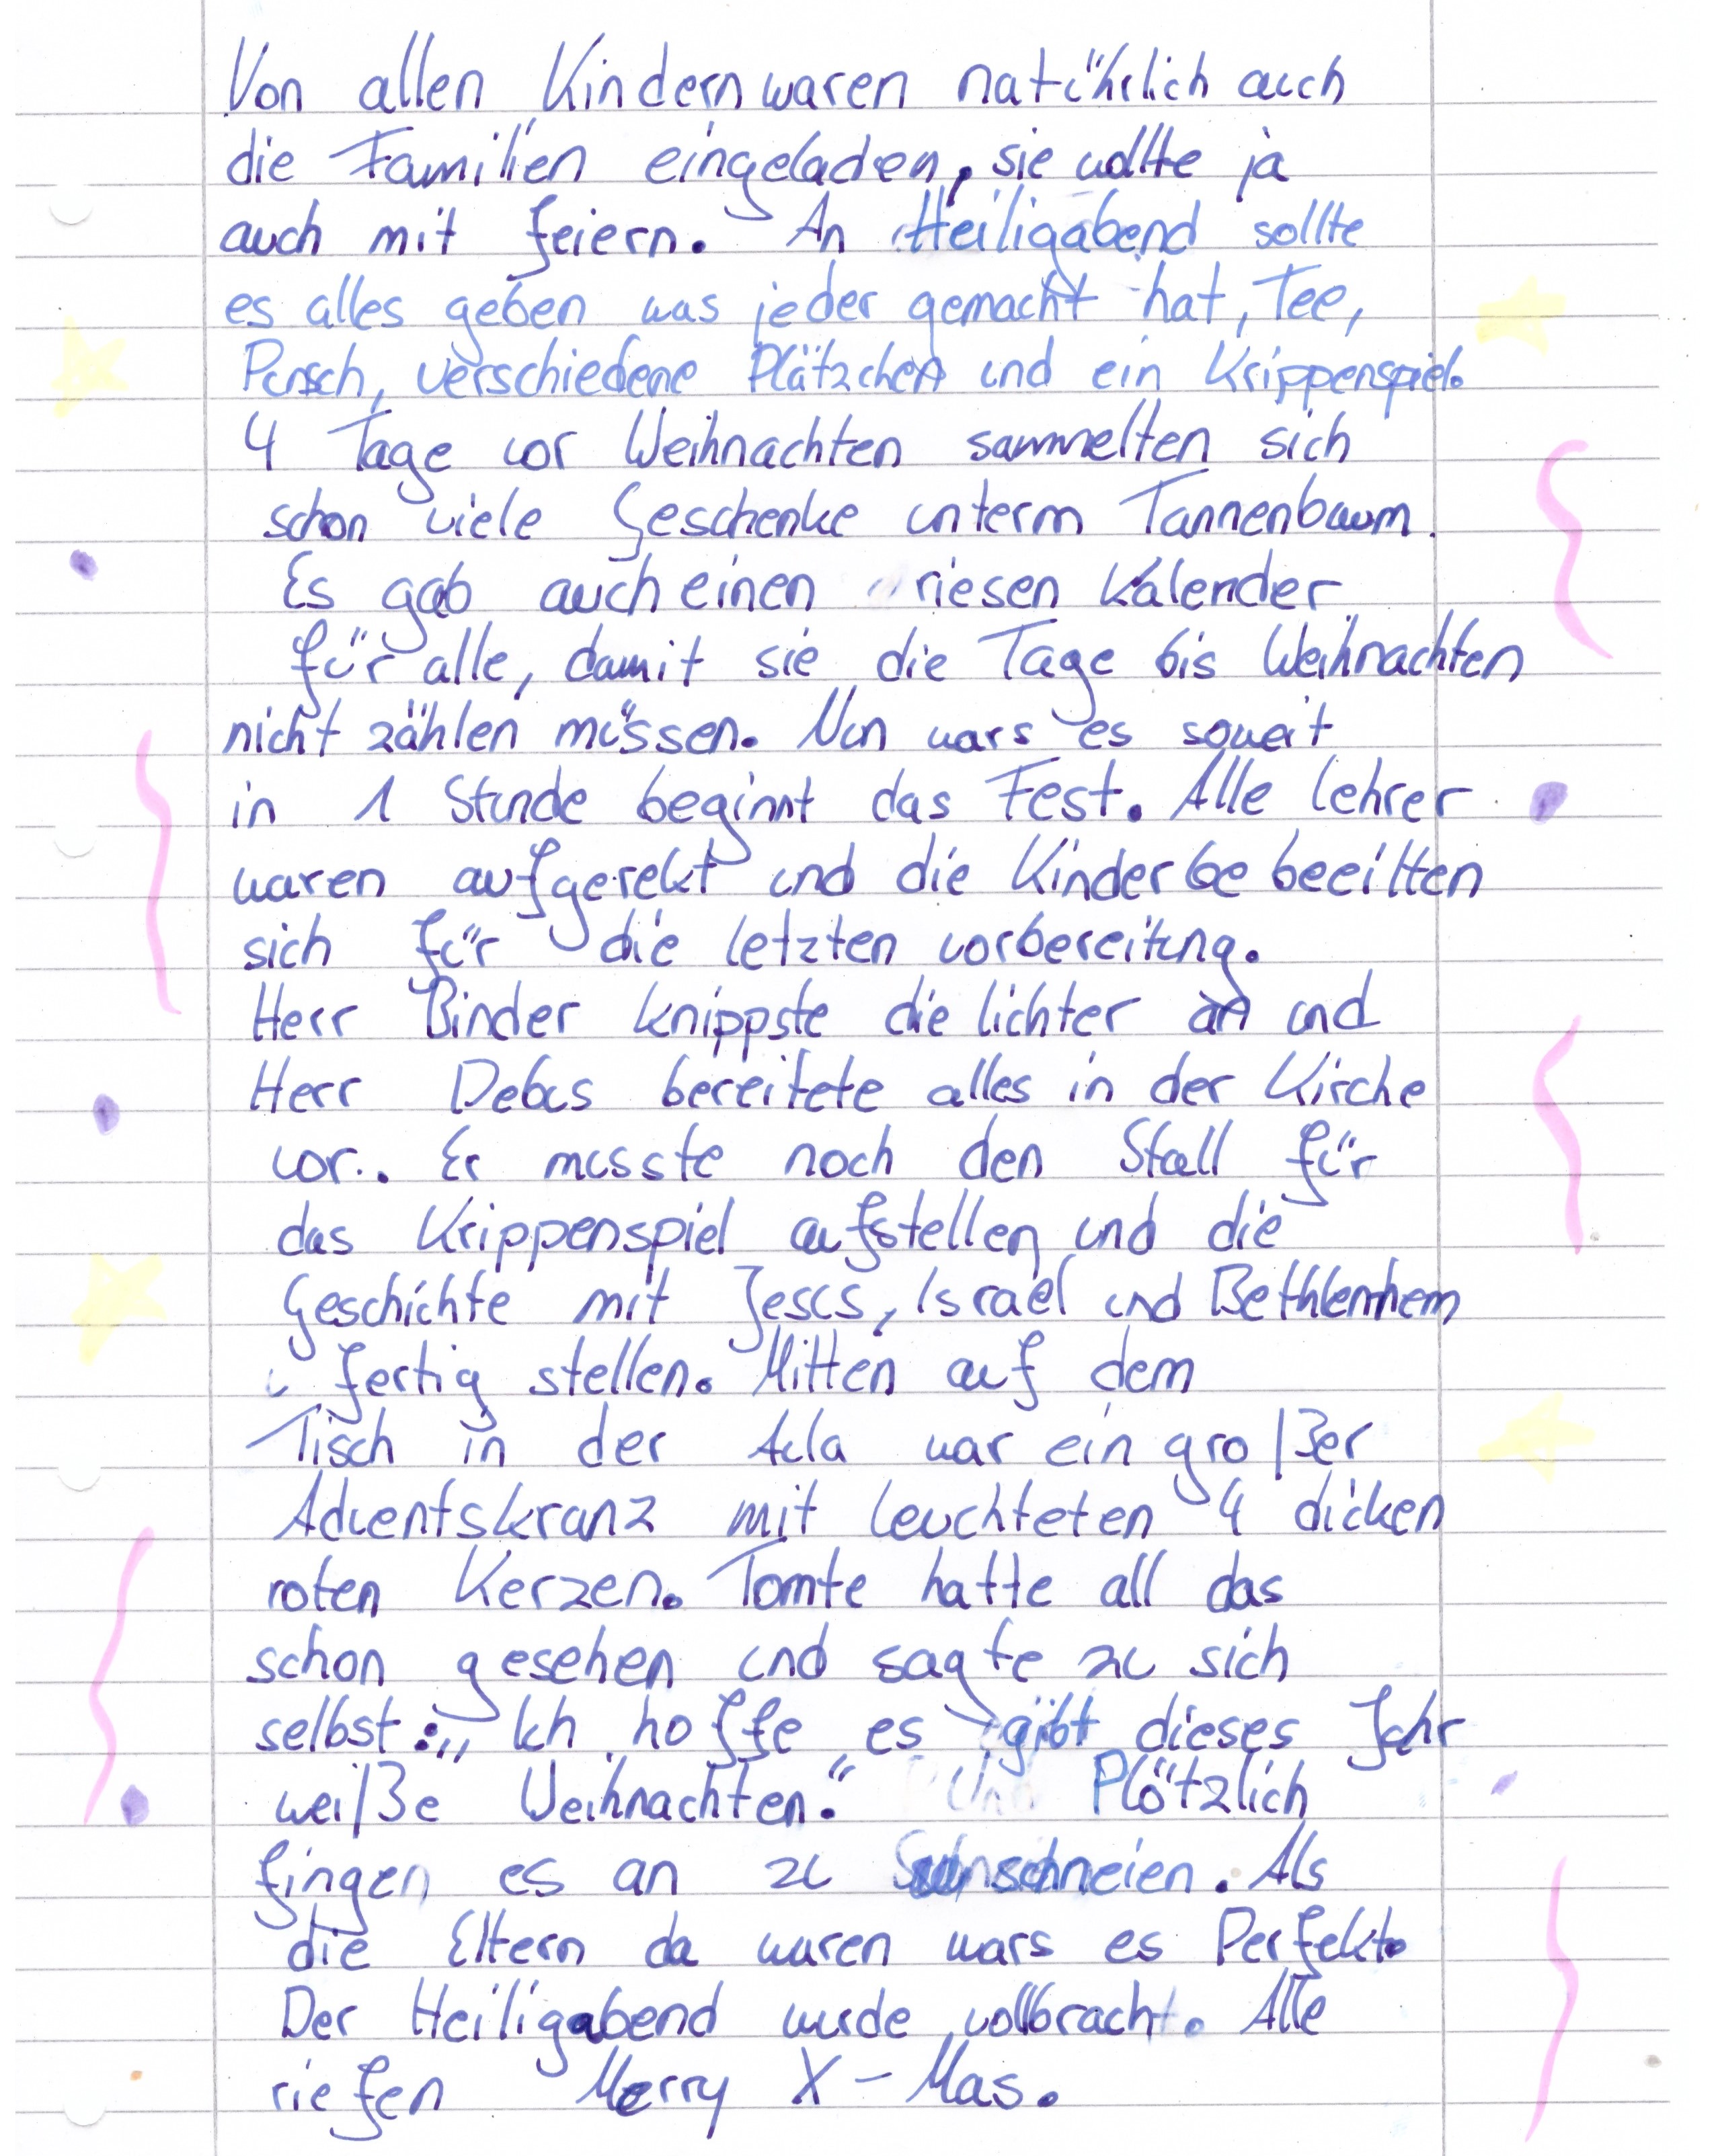 Von allen Kindern waren natührlich auch
die Familien eingeladen, sie wollte ja
auch mit feiern. An Heiligabend sollte
es alles geben was jeder gemacht hat, Tee,
Punsch, verschiedene Plätzchen und ein Krippenspiel.
4 Tage vor Weihnachten sammelten sich
schon viele Geschenke unterm Tannenbaum.
Es gab auch einen riesen Kalender
für alle, damit sie die Tage bis Weihnachten
nicht zählen müssen. Nun wars es soweit
in 1 Stunde beginnt das Fest. Alle Lehrer
waren aufgerekt und die Kinder be beeilten
sich für die letzten vorbereitung.
Herr Binder knippste die lichter an und
Herr Debus bereitete alles in der Kirche
vor.. Er musste noch den Stall für
das Krippenspiel aufstellen und die
Geschichte mit Jesus, Israel und Bethlemhem
fertig stellen. Mitten auf dem
Tisch in der Aula war ein großer
Adventskranz mit leuchteten 4 dicken
roten Kerzen. Tomte hatte all das
schon gesehen und sagte zu sich
selbst: „Ich hoffe es gibt dieses Jahr
weiße Weihnachten.“ Plötzlich
fingen es an zu schneien. Als
die Eltern da waren wars es Perfekt.
Der Heiligabend wurde vollbracht. Alle
riefen Merry X-Mas.